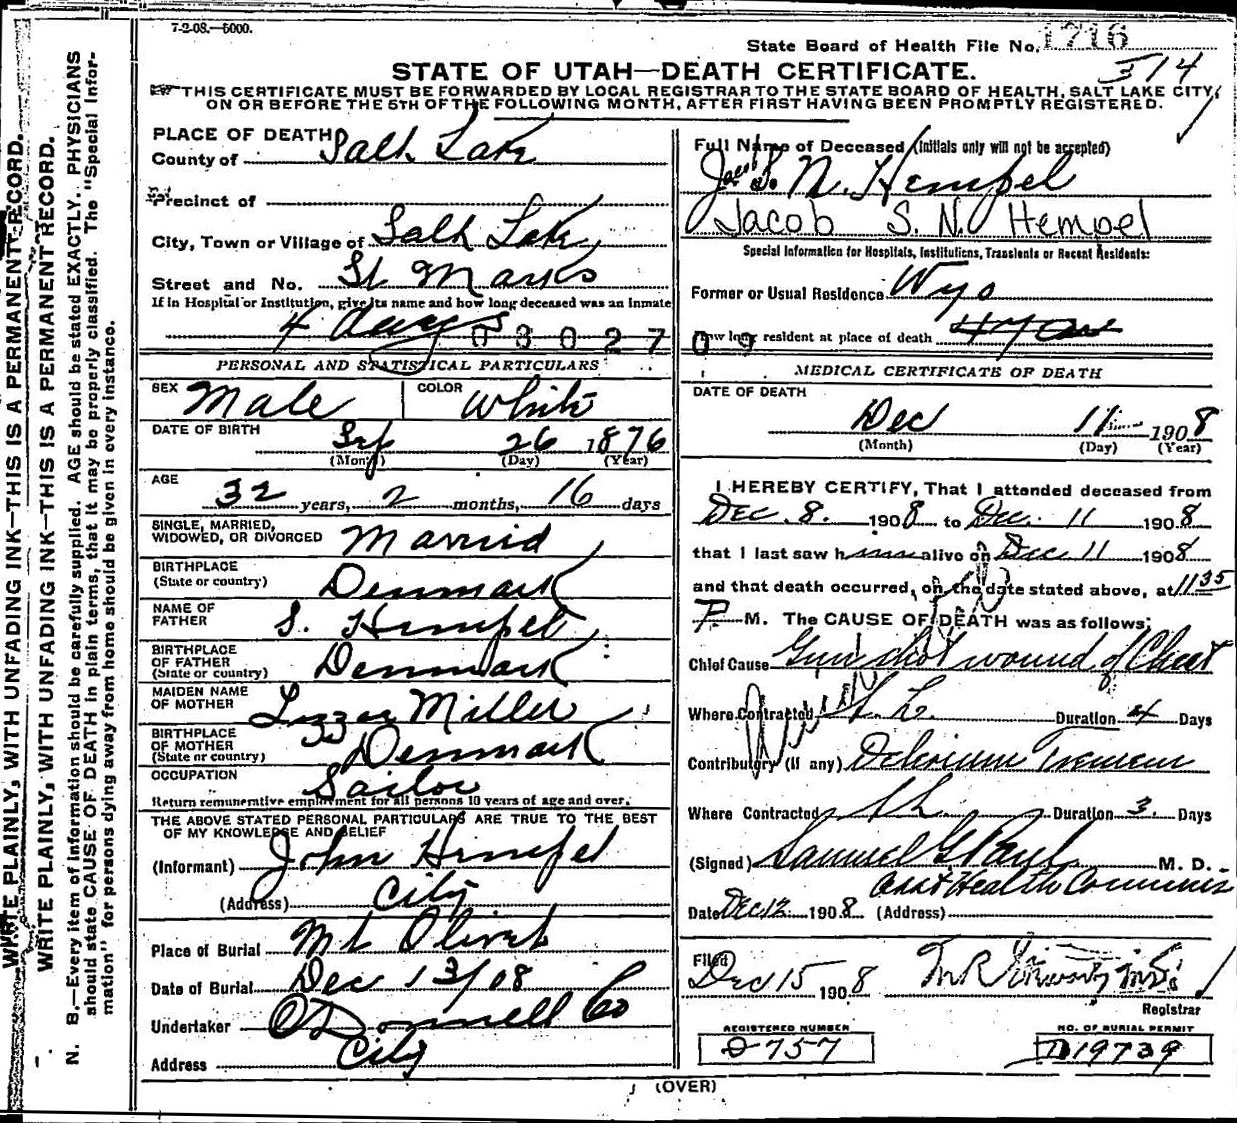 7-2-08.—5000.
State Board of Health File No. 1716
314
STATE OF UTAH—DEATH CERTIFICATE.
THIS CERTIFICATE MUST BE FORWARDED BY LOCAL REGISTRAR TO THE STATE BOARD OF HEALTH, SALT LAKE CITY,
ON OR BEFORE THE 5TH OF THE FOLLOWING MONTH, AFTER FIRST HAVING BEEN PROMPTLY REGISTERED.
WRITE PLAINLY, WITH UNFADING INK—THIS IS A PERMANENT RECORD.
WRITE PLAINLY, WITH UNFADING INK—THIS IS A PERMANENT RECORD.
N. B.—Every item of information should be carefully supplied. AGE should be stated EXACTLY. PHYSICIANS
should state CAUSE OF DEATH in plain terms, that it may be properly classified. The "Special Infor-
mation" for persons dying away from home should be given in every instance.
PLACE OF DEATH
County of Salt Lake
Precinct of
City, Town or Village of Salt Lake
Street and No. St Marks
If in Hospital or Institution, give its name and how long deceased was an inmate
4 days 03027
PERSONAL AND STATISTICAL PARTICULARS
SEX Male COLOR White
DATE OF BIRTH Sep 26 1876
(Month) (Day) (Year)
AGE
32 years, 2 months, 16 days
SINGLE, MARRIED,
WIDOWED, OR DIVORCED Married
BIRTHPLACE
(State or country) Denmark
NAME OF
FATHER S. Hempel
BIRTHPLACE
OF FATHER
(State or country) Denmark
MAIDEN NAME
OF MOTHER Miller
BIRTHPLACE
OF MOTHER
(State or country) Denmark
OCCUPATION Sailor
Return remunerative employment for all persons 10 years of age and over.
THE ABOVE STATED PERSONAL PARTICULARS ARE TRUE TO THE BEST
OF MY KNOWLEDGE AND BELIEF
(Informant) John Hempel
(Address) City
Place of Burial Mt Olivet
Date of Burial Dec 13/08
Undertaker O'Donnell Co
Address City
Full Name of Deceased (Initials only will not be accepted)
Jacob S. N. Hempel
Jacob S. N. Hempel
Special Information for Hospitals, Institutions, Transients or Recent Residents:
Former or Usual Residence Wyo
09 How long resident at place of death
MEDICAL CERTIFICATE OF DEATH
DATE OF DEATH
Dec 11 1908
(Month) (Day) (Year)
I HEREBY CERTIFY, That I attended deceased from
Dec. 8. 1908 to Dec. 11 1908
that I last saw him alive on Dec 11 1908
and that death occurred, on the date stated above, at 11 35
P. M. The CAUSE OF DEATH was as follows:
Chief Cause Gun shot wound of Chest
Where Contracted S. L. Duration 4 Days
Contributory (If any) Delirium Tremens
Where Contracted S. L. Duration 3. Days
(Signed) Samuel G. Paul M. D.
Asst Health Commis
Date Dec 12 1908 (Address)
Filed
Dec 15 1908
Registrar
REGISTERED NUMBER
D-757
NO. OF BURIAL PERMIT
D19739
(OVER)